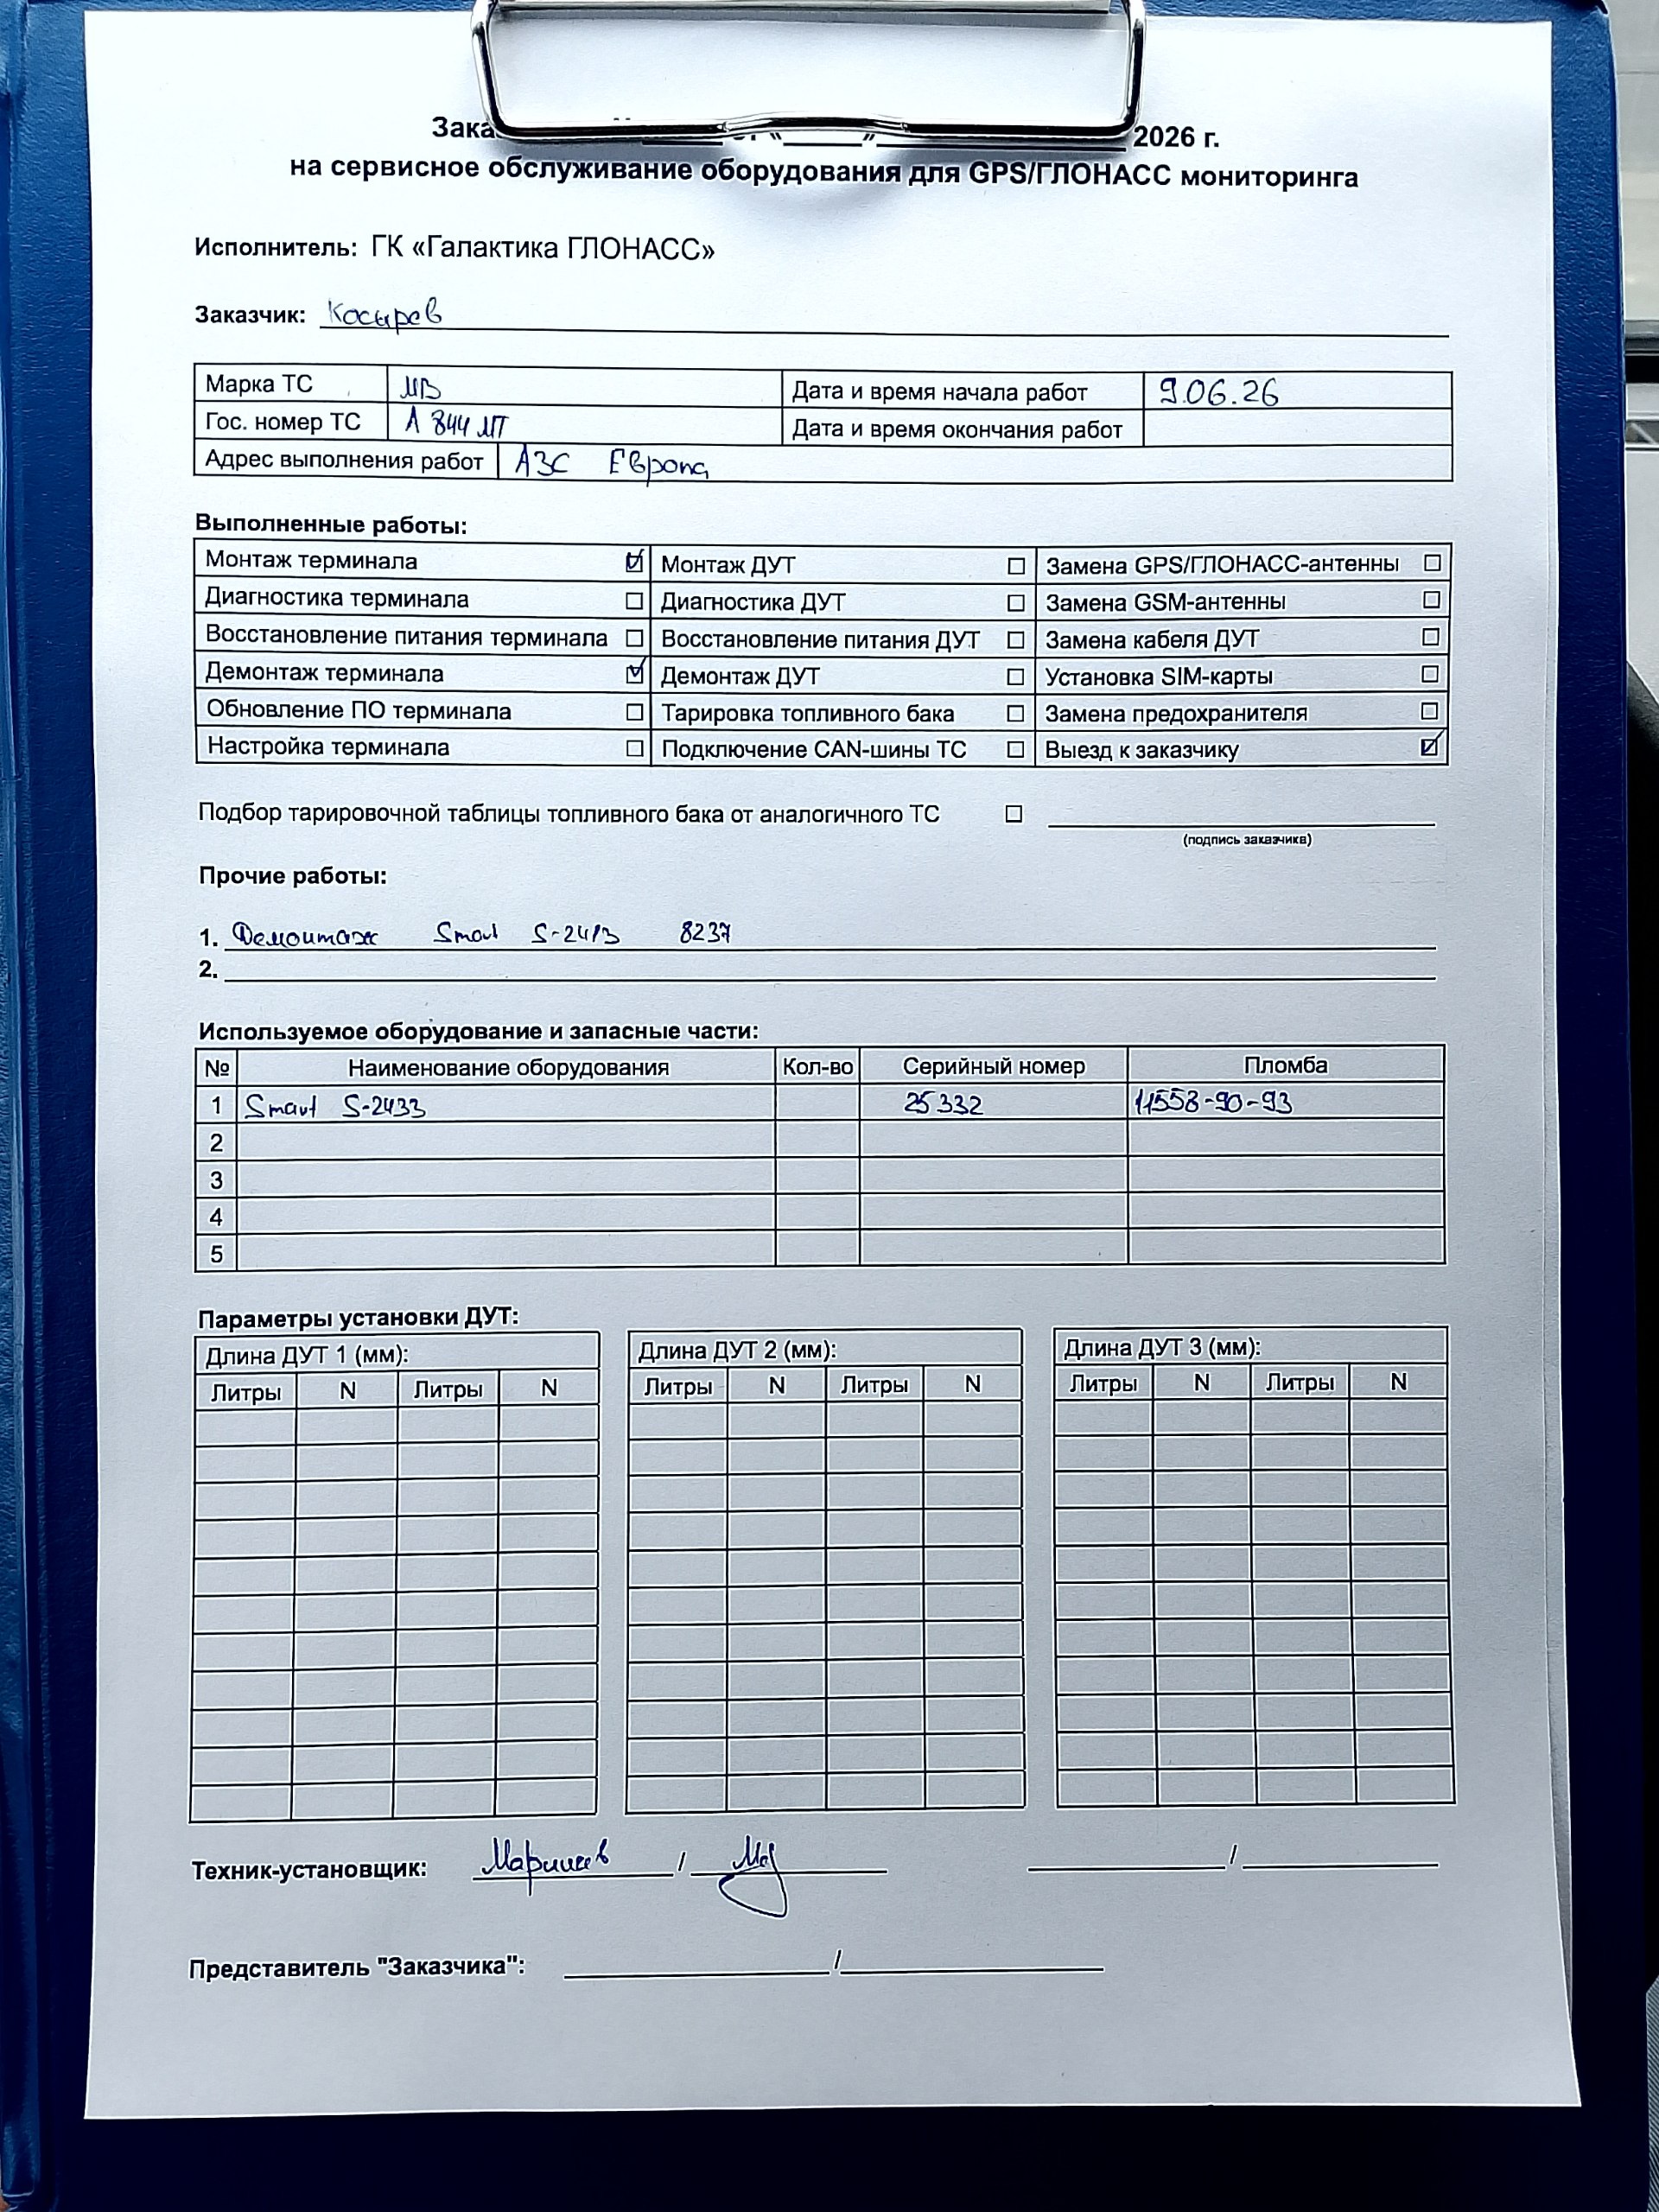 2026 г.
на сервисное обслуживание оборудования для GPS/ГЛОНАСС мониторинга
Исполнитель: ГК «Галактика ГЛОНАСС»
Заказчик: Косырев
Марка ТС МВ Дата и время начала работ 9.06.26
Гос. номер ТС А 844 МТ Дата и время окончания работ
Адрес выполнения работ АЗС Европа
Выполненные работы:
Монтаж терминала ☑ Монтаж ДУТ ☐ Замена GPS/ГЛОНАСС-антенны ☐
Диагностика терминала ☐ Диагностика ДУТ ☐ Замена GSM-антенны ☐
Восстановление питания терминала ☐ Восстановление питания ДУТ ☐ Замена кабеля ДУТ ☐
Демонтаж терминала ☑ Демонтаж ДУТ ☐ Установка SIM-карты ☐
Обновление ПО терминала ☐ Тарировка топливного бака ☐ Замена предохранителя ☐
Настройка терминала ☐ Подключение CAN-шины ТС ☐ Выезд к заказчику ☑
Подбор тарировочной таблицы топливного бака от аналогичного ТС ☐
(подпись заказчика)
Прочие работы:
1. Демонтаж Smart 8237
2.
Используемое оборудование и запасные части:
№ Наименование оборудования Кол-во Серийный номер Пломба
1 Smart S-2433 25332 11558-90-93
2
3
4
5
Параметры установки ДУТ:
Длина ДУТ 1 (мм): Длина ДУТ 2 (мм): Длина ДУТ 3 (мм):
Литры N Литры N Литры N Литры N Литры N Литры N
Техник-установщик: / /
Представитель "Заказчика": /